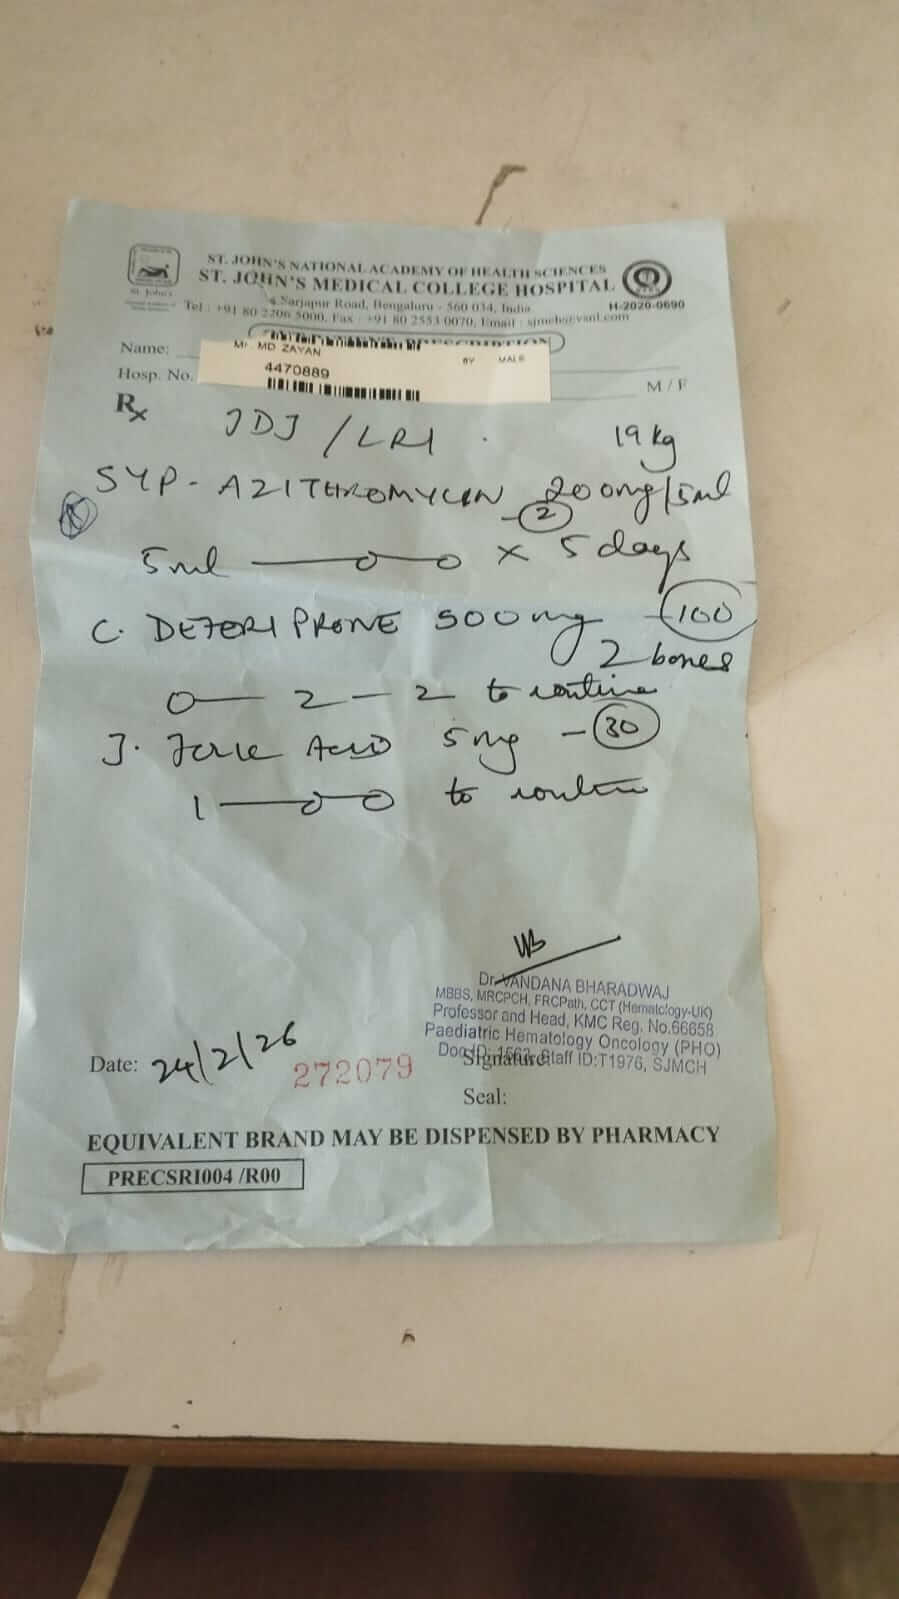 ST. JOHN'S NATIONAL ACADEMY OF HEALTH SCIENCES
ST. JOHN'S MEDICAL COLLEGE HOSPITAL
Sarjapur Road, Bengaluru - 560 034, India
Tel : +91 80 2206 5000, Fax : +91 80 2553 0070, Email : sjmch@vsnl.com
St. John's
H-2020-0690
Name:
MD ZAYAN
8Y MALE
Hosp. No.
4470889
M / F
Rx
/ LRI
19 kg
SYP - AZITHROMYCIN 200mg/5ml
- 2
5ml — 0 — 0 x 5 days
C. DEFERIPRONE 500mg - 100
2 boxes
0 — 2 — 2 to continue
T. Folic Acid 5mg - 30
1 — 0 — 0 to continue
Dr. VANDANA BHARADWAJ
MBBS, MRCPCH, FRCPath, CCT (Hematology-UK)
Professor and Head, KMC Reg. No.66658
Paediatric Hematology Oncology (PHO)
Staff ID:T1976, SJMCH
Date: 24/2/26
272079
Signature:
Seal:
EQUIVALENT BRAND MAY BE DISPENSED BY PHARMACY
PRECSRI004 /R00